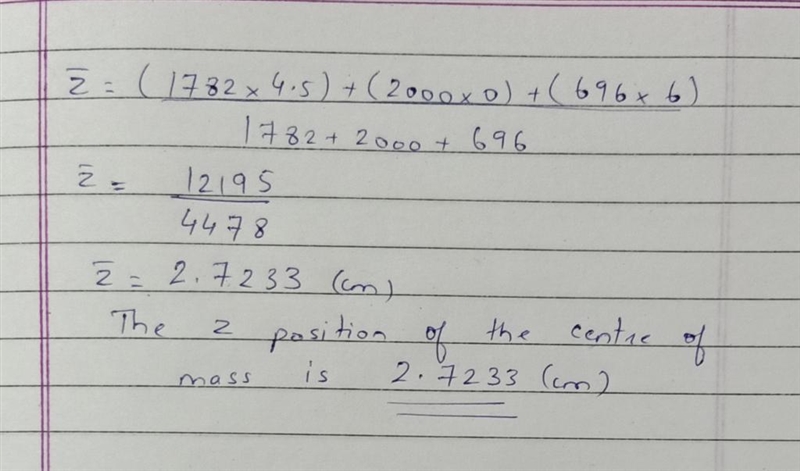 z̄ = (1782 × 4.5) + (2000 × 0) + (696 × 6)
1782 + 2000 + 696
z̄ = 12195
4478
z̄ = 2.7233 (cm)
The z position of the centre of
mass is 2.7233 (cm)